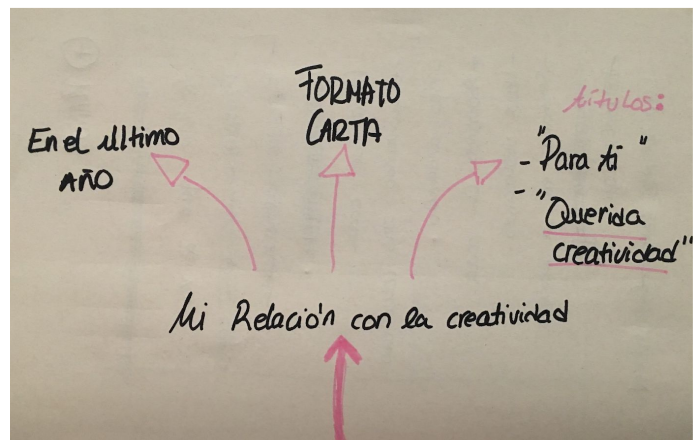 En el último
AÑO
FORMATO
CARTA
títulos:
- "Para ti"
- "Querida
creatividad"
Mi Relación con la creatividad